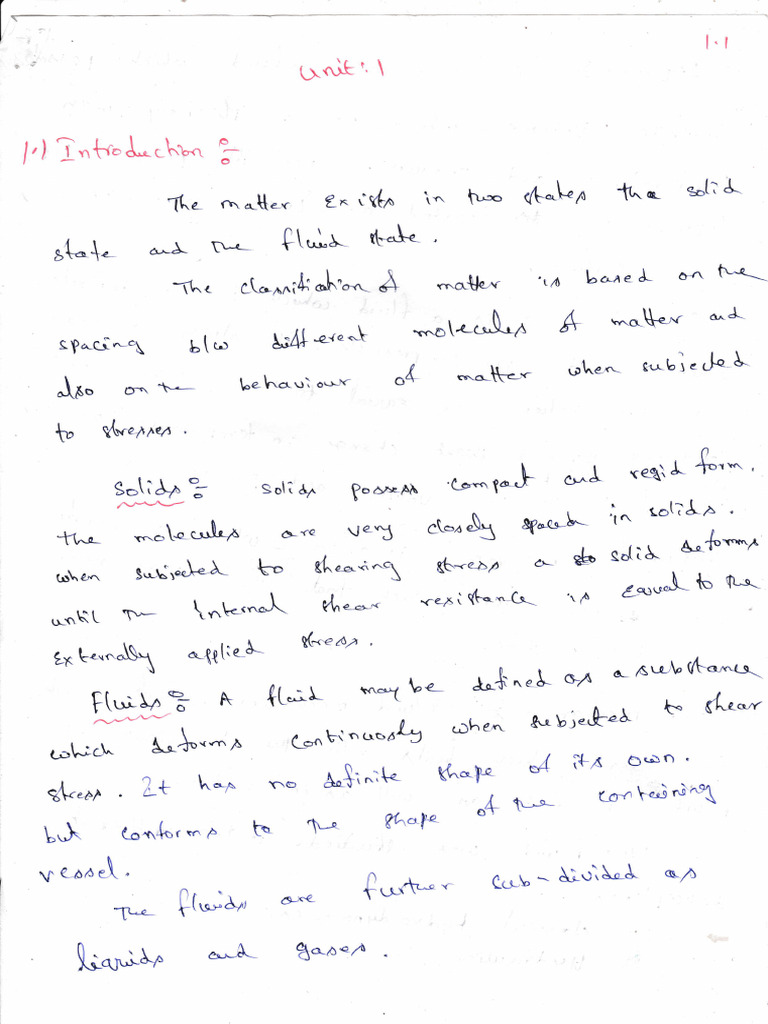 1.1
Unit: 1
1.1 Introduction :-
The matter exists in two states the solid
state and the fluid state.
The classification of matter is based on the
spacing b/w different molecules of matter and
also on the behaviour of matter when subjected
to stresses.
Solids :- solids possess compact and regid form.
the molecules are very closely spaced in solids.
when subjected to shearing stress a solid deforms
until the internal shear resistance is equal to the
externally applied stress.
Fluids :- A fluid may be defined as a substance
which deforms continuosly when subjected to shear
stress. It has no definite shape of its own.
but conforms to the shape of the containing
vessel.
The fluids are further sub-divided as
liquids and gases.